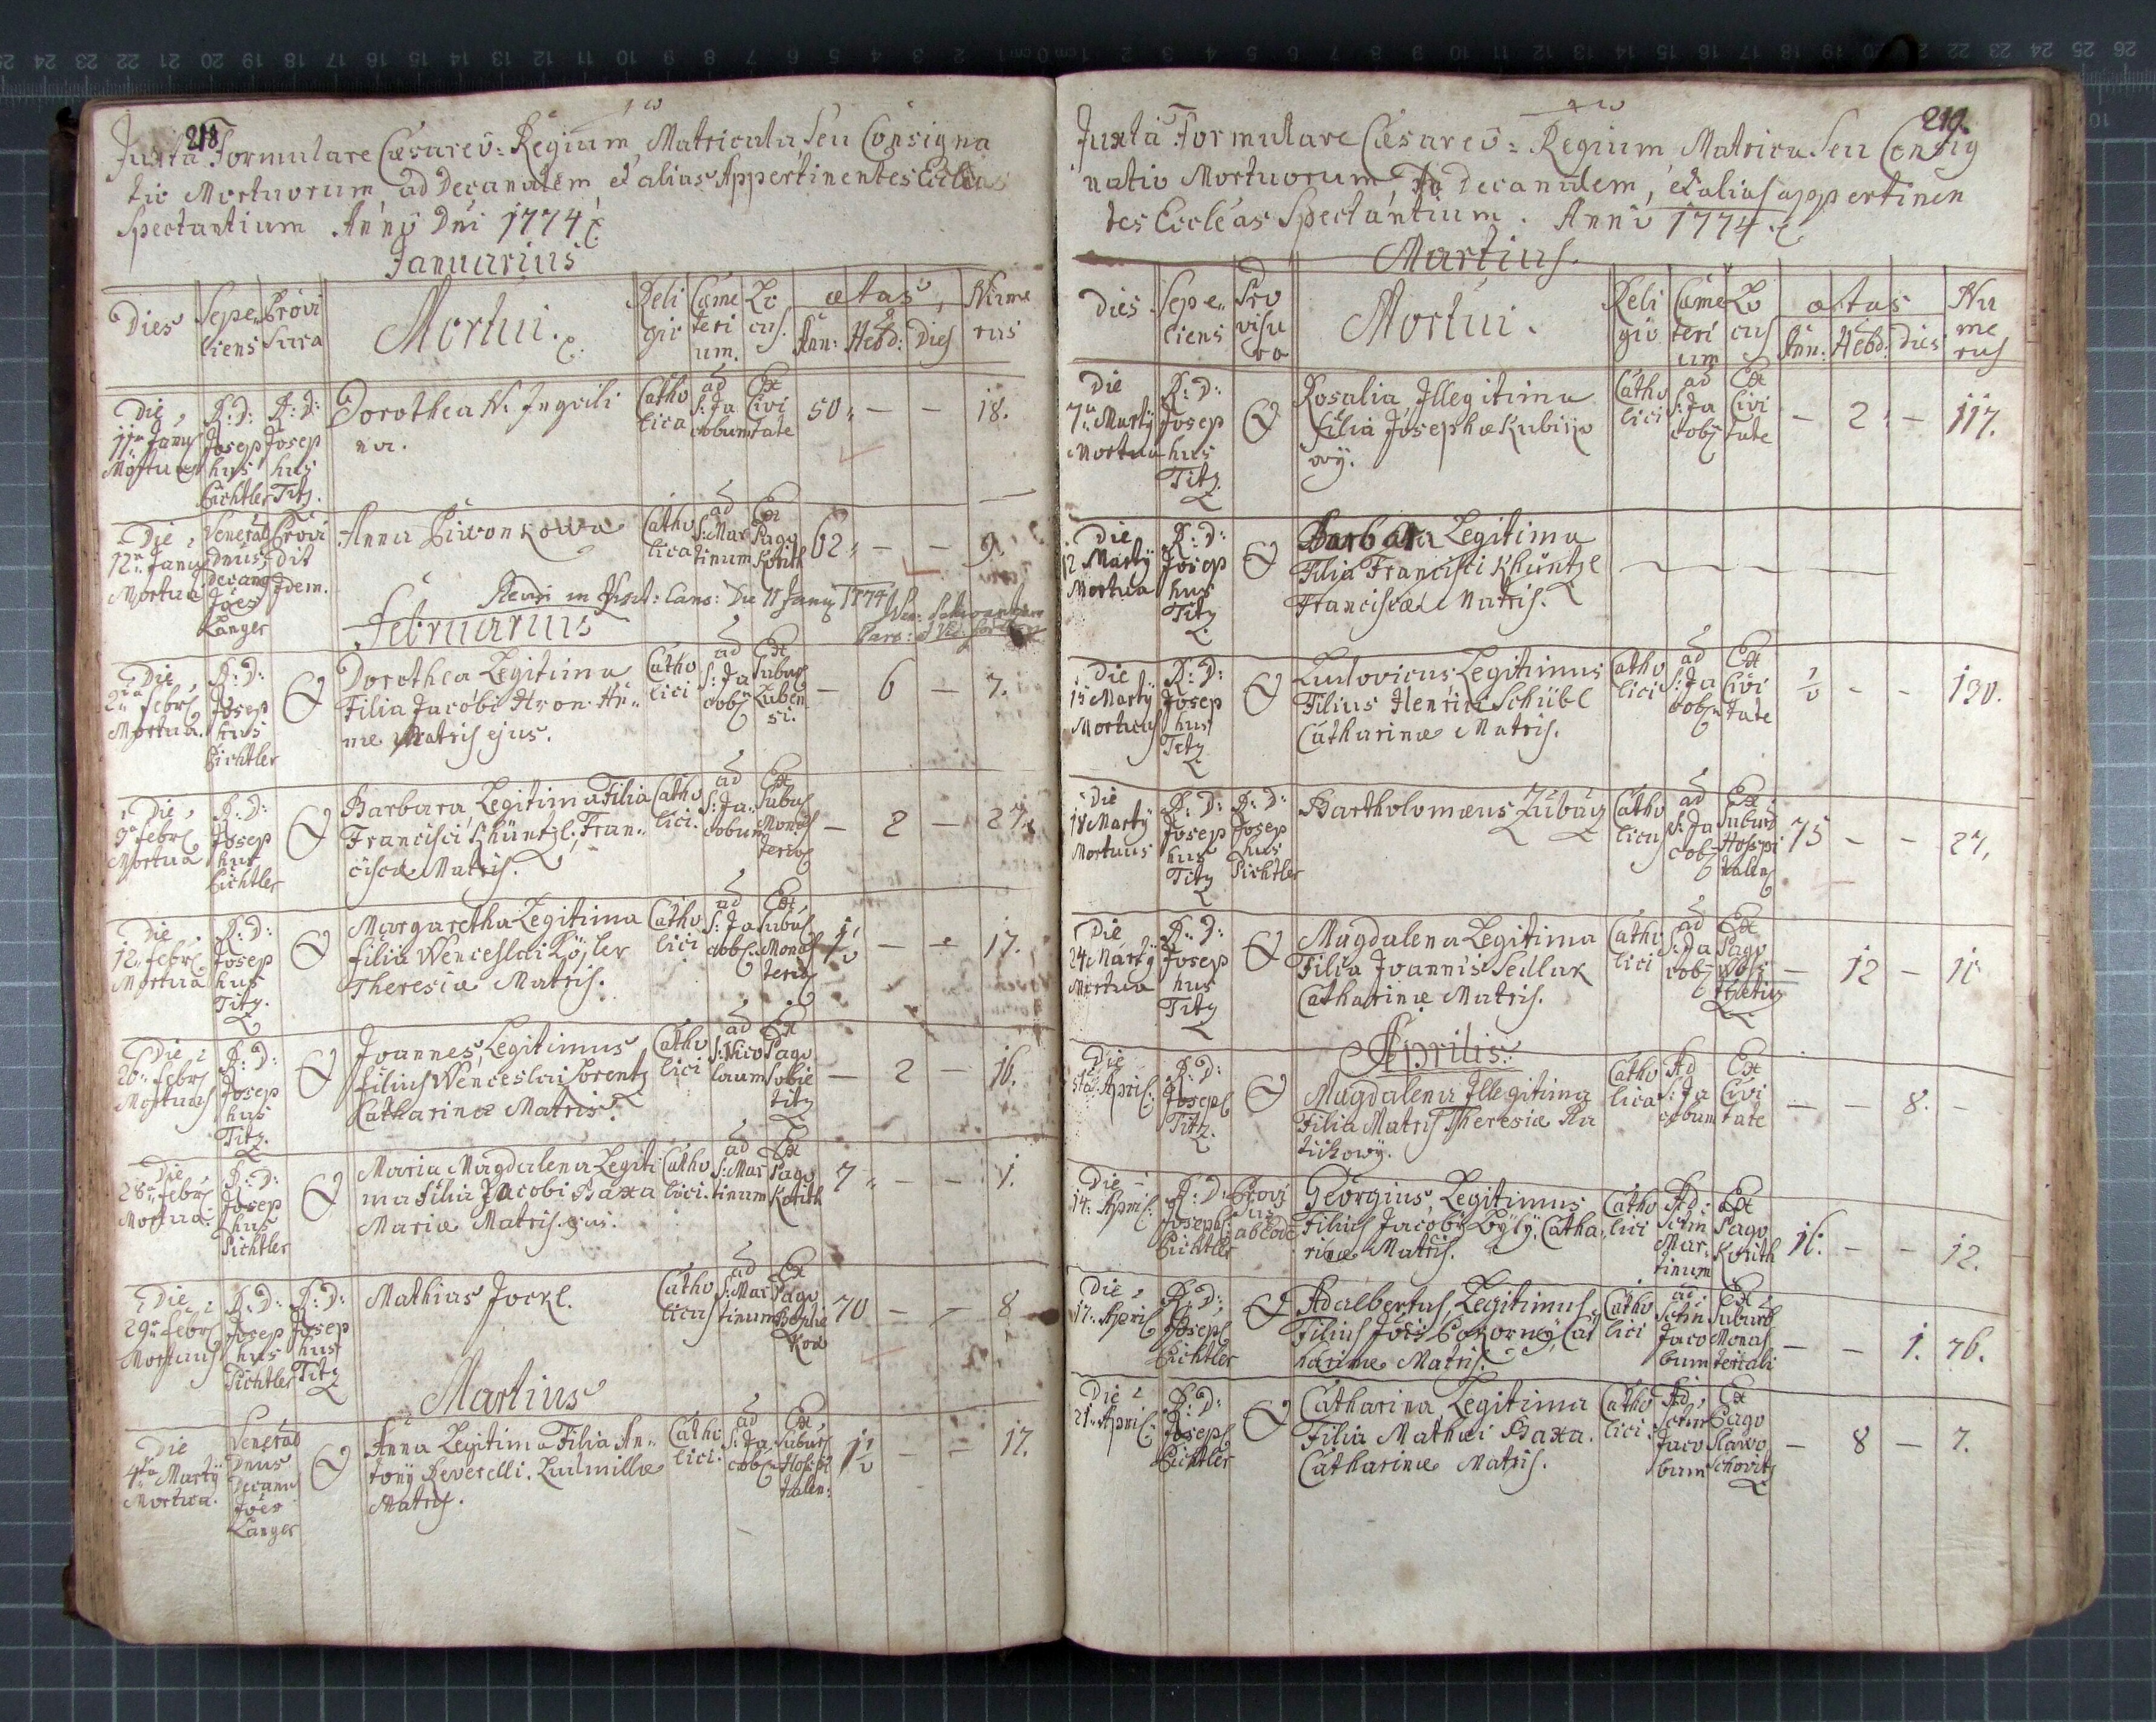 218
Juxta Formulare Cæsareo: Regium, Matricula seu Consigna
tio Mortuorum ad Decanalem et alias Appertinentes Ecclêas
Spectantium Anno Dni 1774
Januarius
Dies
Sepe
liens
Provi
sura
Mortui.
Reli
gio
Cæme
teri
um.
Lo
cus.
ætas
Ann: Hebd: Dies
Nume
rus
Die
11a Janu
Mortua
R: D:
Josep
hus
Pichtler
R: D:
Josep
hus
Titz.
Dorothea N. Inquili
na.
Catho
lica
ad
S: Ja
cobum
Ex
Civi
tate
50 — — 18.
Die
12a Janu
Mortua
Venerab
Dnus
Decang
Joês
Langer
Provi
dit
Idem.
Anna Piwonkowa
Catho
lica
ad
S: Mar
tinum
Ex
Pago
Kotith
62 — — 9.
Februarius
Die
2da febr
Mortua.
R: D:
Josep
hus
Pichtler
Dorothea Legitima
Filia Jacobi Hron. An
næ Matris ejus.
Catho
lici
ad
S: Ja
cob
Ex
Subur
Luben
si.
— 6 — 7.
Die
9a febr
Mortua
R: D:
Josep
hus
Pichtler
Barbara, Legitima Filia
Francisci Khüntzl, Fran
ciscæ Matris.
Catho
lici.
ad
S: Ja
cobum
Ex
Subur
Monas
terio
— 2 — 27.
Die
12a febr
Mortua
R: D:
Josep
hus
Titz.
Margaretha Legitima
filia Wenceslai Köszler
Theresiæ Matris.
Catho
lici
ad
S: Ja
cob
Ex
Subur
Monas
terio
— — 17.
Die
20a febr
Mortuus
R: D:
Josep
hus
Titz.
Joannes, Legitimus
filius Wenceslai Lorentz
Catharinæ Matris.
Catho
lici
ad
S: Nico
laum
Ex
Pago
Sobie
titz
— 2 — 16.
Die
28a febr
Mortua.
R: D:
Josep
hus
Pichtler
Maria Magdalena Legiti
ma filia Jacobi Baxa
Mariæ Matris.
Catho
lici.
ad
S: Mar
tinum
Ex
Pago
Kotith
7 — — 1.
Die
29a febr
Mortuus
R: D:
Josep
hus
Pichtler
R: D:
Josep
hus
Titz
Mathias Jockl.
Catho
licus
ad
S: Mar
tinum
Ex
Pago
70 — — 8
Martius
Die
4ta Martÿ
Mortua.
Venerab
Dnus
Decanu
Joês
Langer
Anna Legitima Filia An
tonÿ Reverelli, Ludmillæ
Matris.
Catho
lici.
ad
S: Ja
cob
Ex
Subur
Hospi
talen:
— — 17.
219.
Juxta Formulare Cæsareo = Regium Matricu Seu Consig
natio Mortuorum, ad Decanalem, et alias appertinen
tes Ecclêas Spectantium. Anno 1774.
Martius.
Dies
Sepe
liens
Pro
visu
ra
Mortui.
Reli
gio
Cæme
teri
um
Lo
cus
ætas
Ann: Hebd: Dies
Nu
me
rus
Die
7a Martÿ
Mortua
R: D:
Josep
hus
Titz.
Rosalia Illegitima
filia Josephæ Kubizo
wÿ.
Catho
lici
ad
S: Ja
cob
Ex
Civi
tate
— 2 — 117.
Die
12 Martÿ
Mortua
R: D:
Josep
hus
Titz
Barbara Legitima
Filia Francisci Khüntzl
Franciscæ Matris.
Die
15 Martÿ
Mortuus
R: D:
Josep
hus
Titz
Ludovicus, Legitimus
Filius Henrici Schübl
Catharinæ Matris.
Catho
lici
ad
S: Ja
cob
Ex
Civi
tate
— — 130.
Die
18 Martÿ
Mortuus
R: D:
Josep
hus
Titz
R: D:
Josep
hus
Pichtler
Bartholomæus Zubag
Catho
licus
ad
S: Ja
cob
Ex
Suburb
Hospi
talen
75 — — 27.
Die
24 Martÿ
Mortua
R: D:
Josep
hus
Titz
Magdalena Legitima
Filia Joannis Sedlak
Catharinæ Matris.
Catho
lici
ad
S: Ja
cob
Ex
Pago
— 12 — 11
Aprilis.
Die
5ta April:
R: D:
Joseph
Titz.
Magdalena Illegitima
Filia Matris Theresiæ Ra
tickowÿ.
Catho
lica
Ad
S: Ja
cobum
Ex
Civi
tate
— — 8. —
Die
14: April:
R: D:
Joseph:
Pichtler
Provi
sus
ab Eode
Georgius, Legitimus
Filius Jacobi Bÿlÿ, Catha
rinæ Matris.
Catho
lici
Ad:
Sctm
Mar:
tinum
Ex
Pago
Kotith
16. — — 12.
Die
17. April
R: D:
Joseph
Pichtler
Adalbertus, Legitimus
Filius Jois Pokornÿ, Cat
harinæ Matris.
Catho
lici
ad
Sctm
Jaco
bum
Ex
Suburb
Monas
teriali
— — 1. 76.
Die
21. April
R: D:
Joseph
Pichtler
Catharina Legitima
Filia Mathæi Baxa.
Catharinæ Matris.
Catho
lici
Ad
Sctm
Jaco
bum
Ex
Pago
Slawo
schovitz
— 8 — 7.